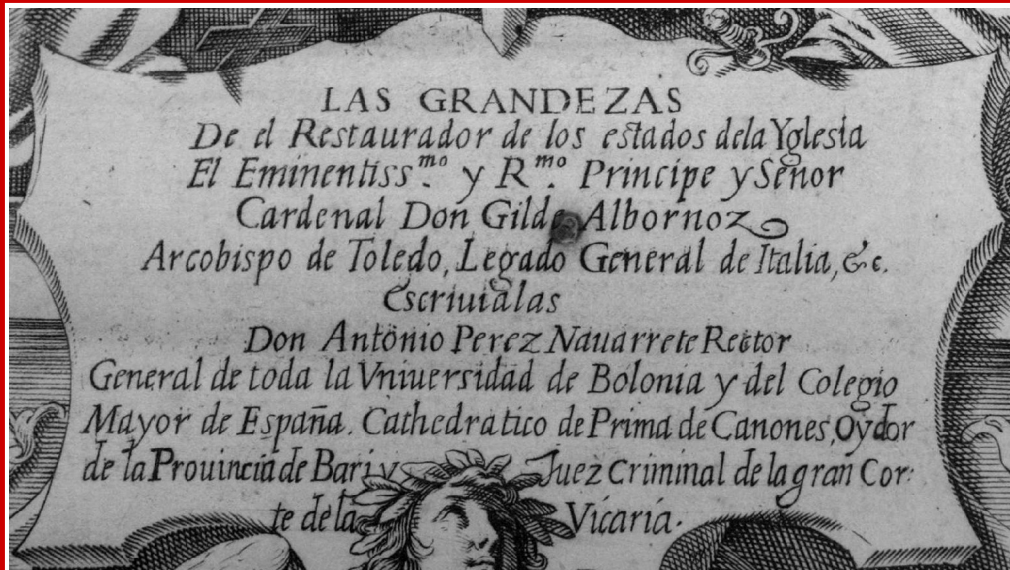 LAS GRANDEZAS
De el Restaurador de los estados dela Yglesia
El Eminentiss.mo y R.mo Principe y Señor
Cardenal Don Gil de Albornoz
Arcobispo de Toledo, Legado General de Italia, &c.
Escriuialas
Don Antonio Perez Nauarrete Rector
General de toda la Vniuersidad de Bolonia y del Colegio
Mayor de España. Cathedratico de Prima de Canones, Oydor
de la Prouincia de Bari y Juez Criminal de la gran Cor:
te de la Vicaria.